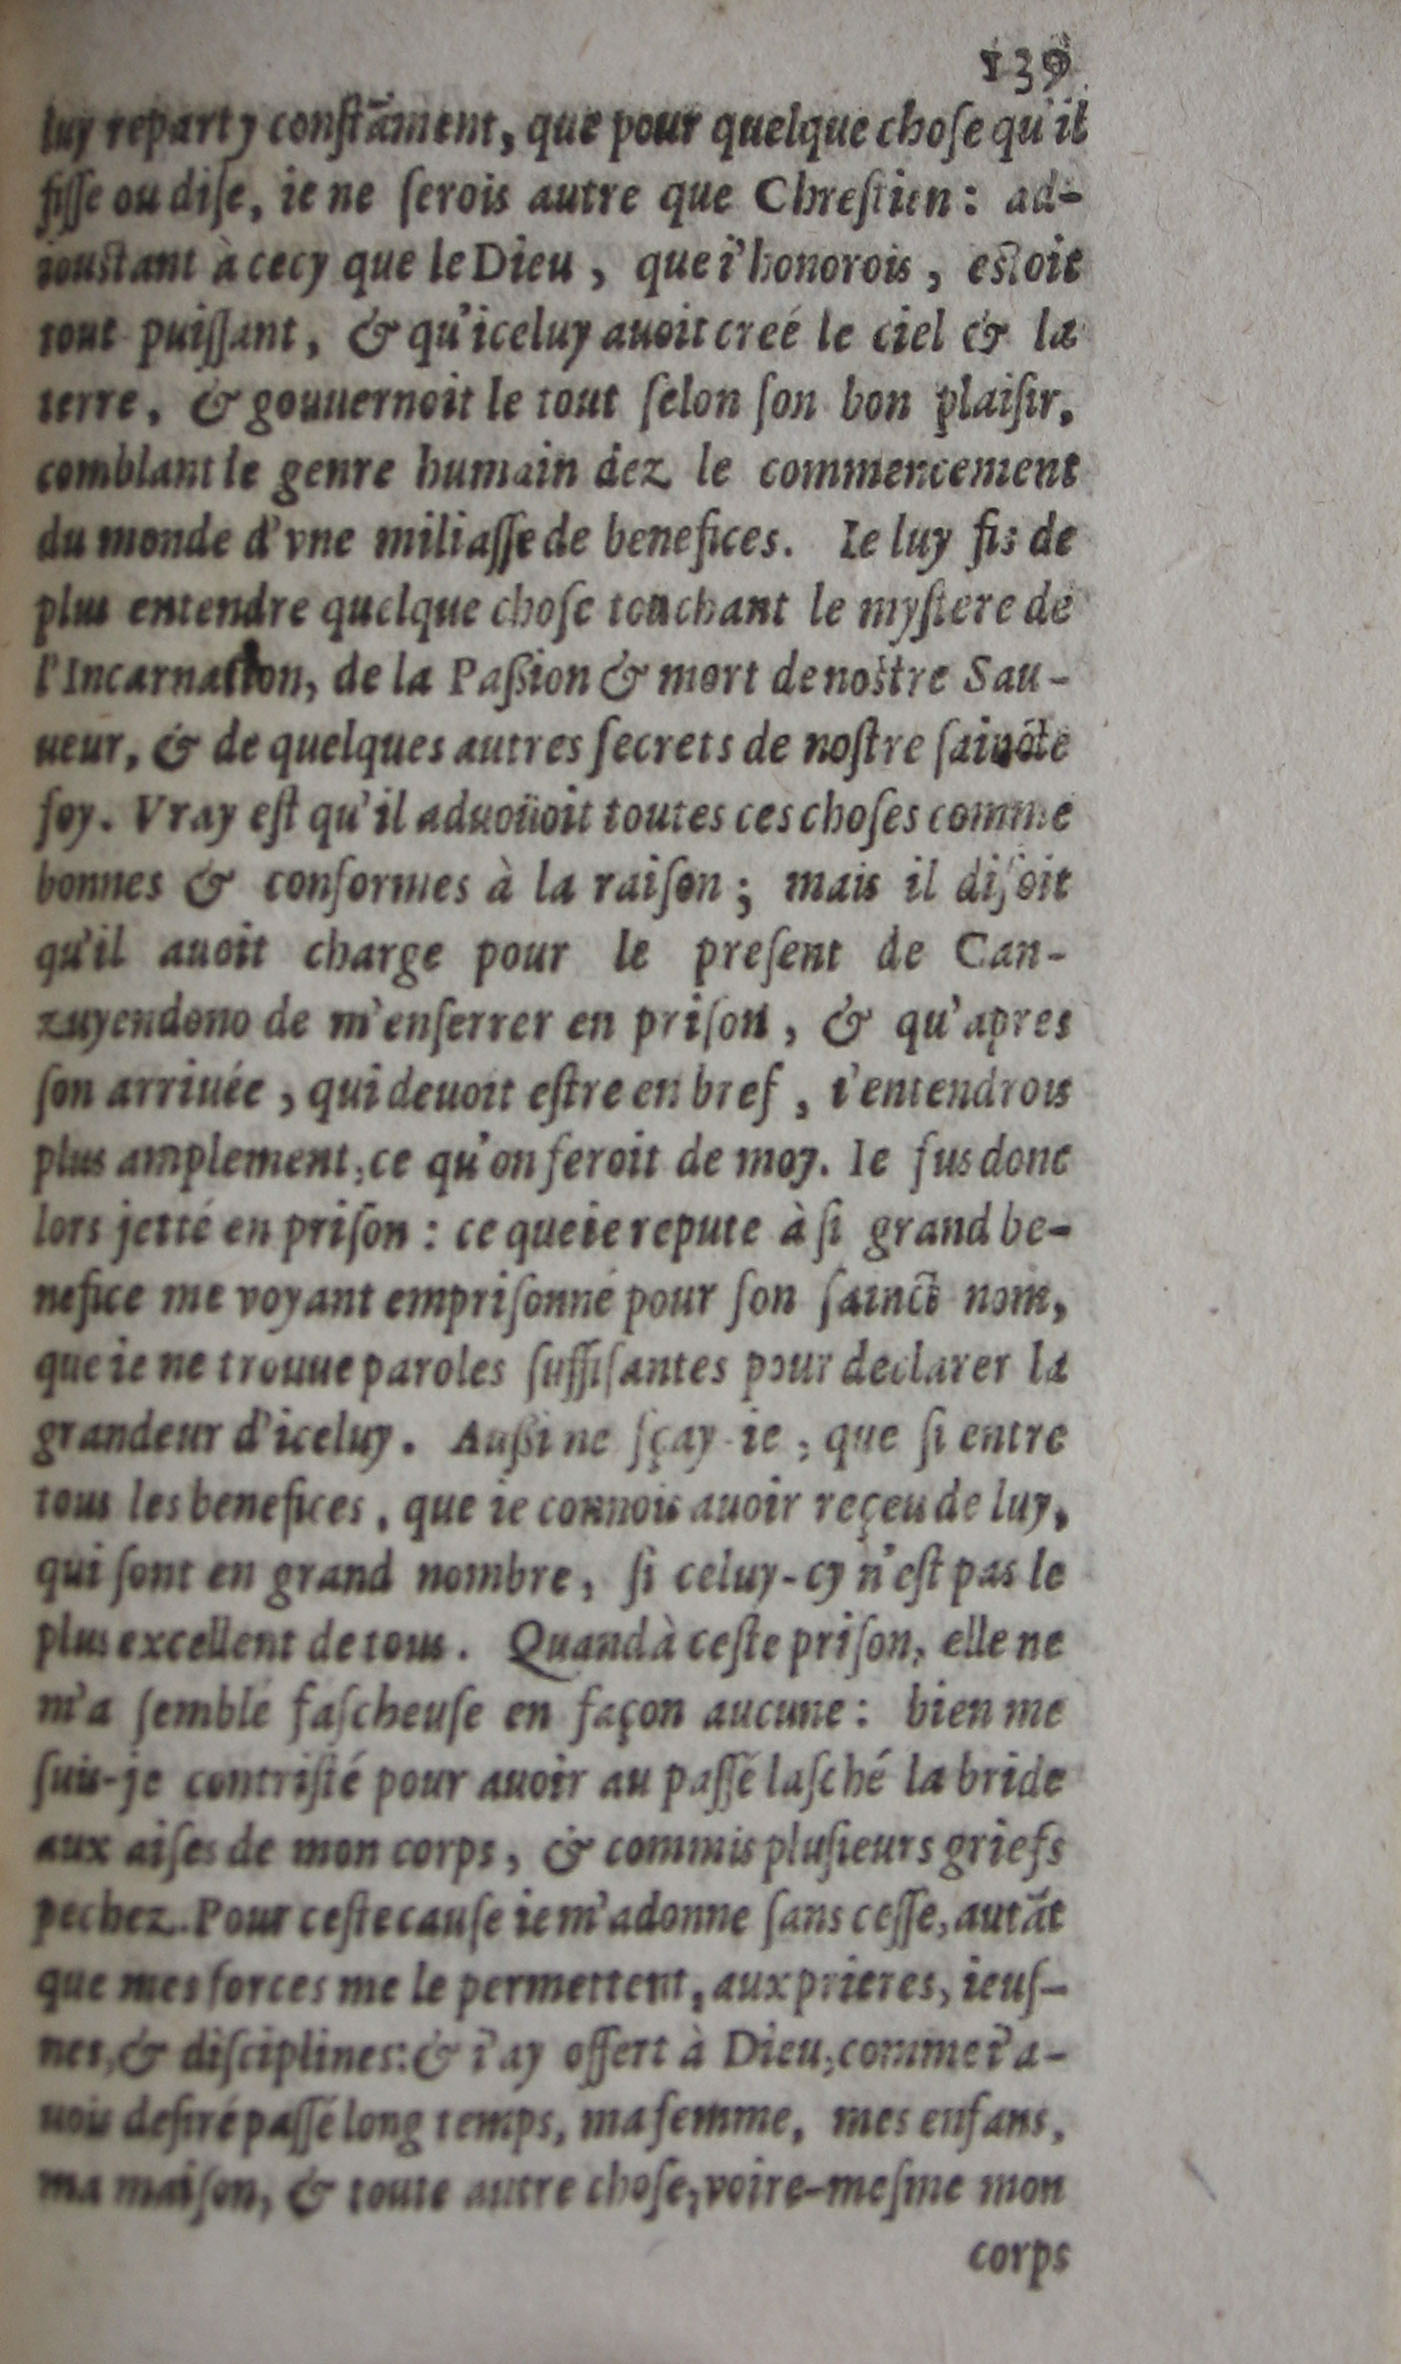 139
luy reparty constãment, que pour quelque chose qu'il
fisse ou dise, ie ne serois autre que Chrestien: ad-
ioustant à cecy que le Dieu, que i'honorois, estoit
tout puissant, & qu'iceluy auoit creé le ciel & la
terre, & gouuernoit le tout selon son bon plaisir,
comblant le genre humain dez le commencement
du monde d'vne miliasse de benefices. Ie luy fis de
plus entendre quelque chose touchant le mystere de
l'Incarnation, de la Passion & mort de nostre Sau-
ueur, & de quelques autres secrets de nostre saincte
foy. Vray est qu'il aduoüoit toutes ces choses comme
bonnes & conformes à la raison; mais il disoit
qu'il auoit charge pour le present de Can-
zuyendono de m'enserrer en prison, & qu'apres
son arriuée, qui deuoit estre en bref, i'entendrois
plus amplement, ce qu'on feroit de moy. Ie fus donc
lors jetté en prison: ce que ie repute à si grand be-
nefice me voyant emprisonné pour son sainct nom,
que ie ne trouue paroles suffisantes pour declarer la
grandeur d'iceluy. Aussi ne sçay-ie, que si entre
tous les benefices, que ie connois auoir reçeu de luy,
qui sont en grand nombre, si celuy-cy n'est pas le
plus excellent de tous. Quand à ceste prison, elle ne
m'a semblé fascheuse en façon aucune: bien me
suis-je contristé pour auoir au passé lasché la bride
aux aises de mon corps, & commis plusieurs griefs
pechez. Pour ceste cause ie m'adonne sans cesse, autãt
que mes forces me le permettent, aux prieres, ieus-
nes, & disciplines: & i'ay offert à Dieu, comme i'a-
uois desiré passé long temps, ma femme, mes enfans,
ma maison, & toute autre chose, voire-mesme mon
corps